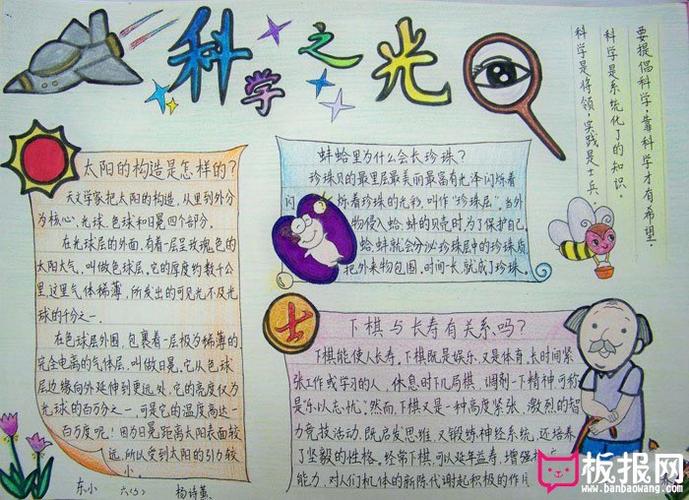 科学之光
要提倡科学,靠科学才有希望。
科学是系统化了的知识。
科学是将领,实践是士兵。
太阳的构造是怎样的?
天文学家把太阳的构造,从里到外分
为核心、光球、色球和日冕四个部分。
在光球层的外面,有着一层呈玫瑰色的
太阳大气,叫做色球层,它的厚度约数千公
里,这里气体稀薄,所发出的可见光不及光
球的千分之一。
在色球层外围,包裹着一层极为稀薄的,
完全电离的气体层,叫做日冕,它从色球
层边缘向外延伸到更远处,它的亮度仅为
光球的百万分之一,可是它的温度高达一
百万度呢!因为日冕距离太阳表面较
远,所以受到太阳的引力较
小。
东小
蚌蛤里为什么会长珍珠?
珍珠贝的最里层最美丽最富有光泽闪烁着
闪烁着珍珠的光彩,叫作"珍珠层",当外
物侵入蛤、蚌的贝壳时,为了保护自己,
蛤、蚌就会分泌珍珠层中的珍珠质
把外来物包围,时间一长,就成了珍珠。
士
下棋与长寿有关系吗?
下棋能使人长寿。下棋既是娱乐,又是体育,长时间紧
张工作或学习的人,休息时下几局棋,调剂一下精神,可称
是"乐以忘忧"。然而,下棋又是一种高度紧张、激烈的智
力竞技活动,既启发思维,又锻练神经系统,还培养
了坚毅的性格。经常下棋,可以延年益寿,增强
能力,对人们机体的新陈代谢起积极的作用
板报网
www.banbaowang.com